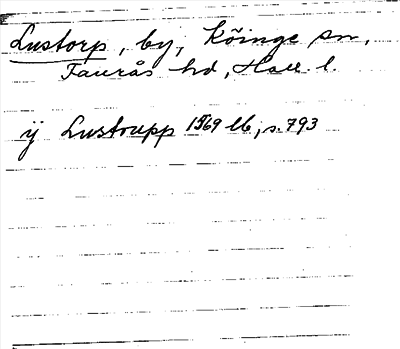 Lustorp, by, Köinge sn,
Faurås hd, Hall. l.
ij Lustrupp 1569 lb, s. 793